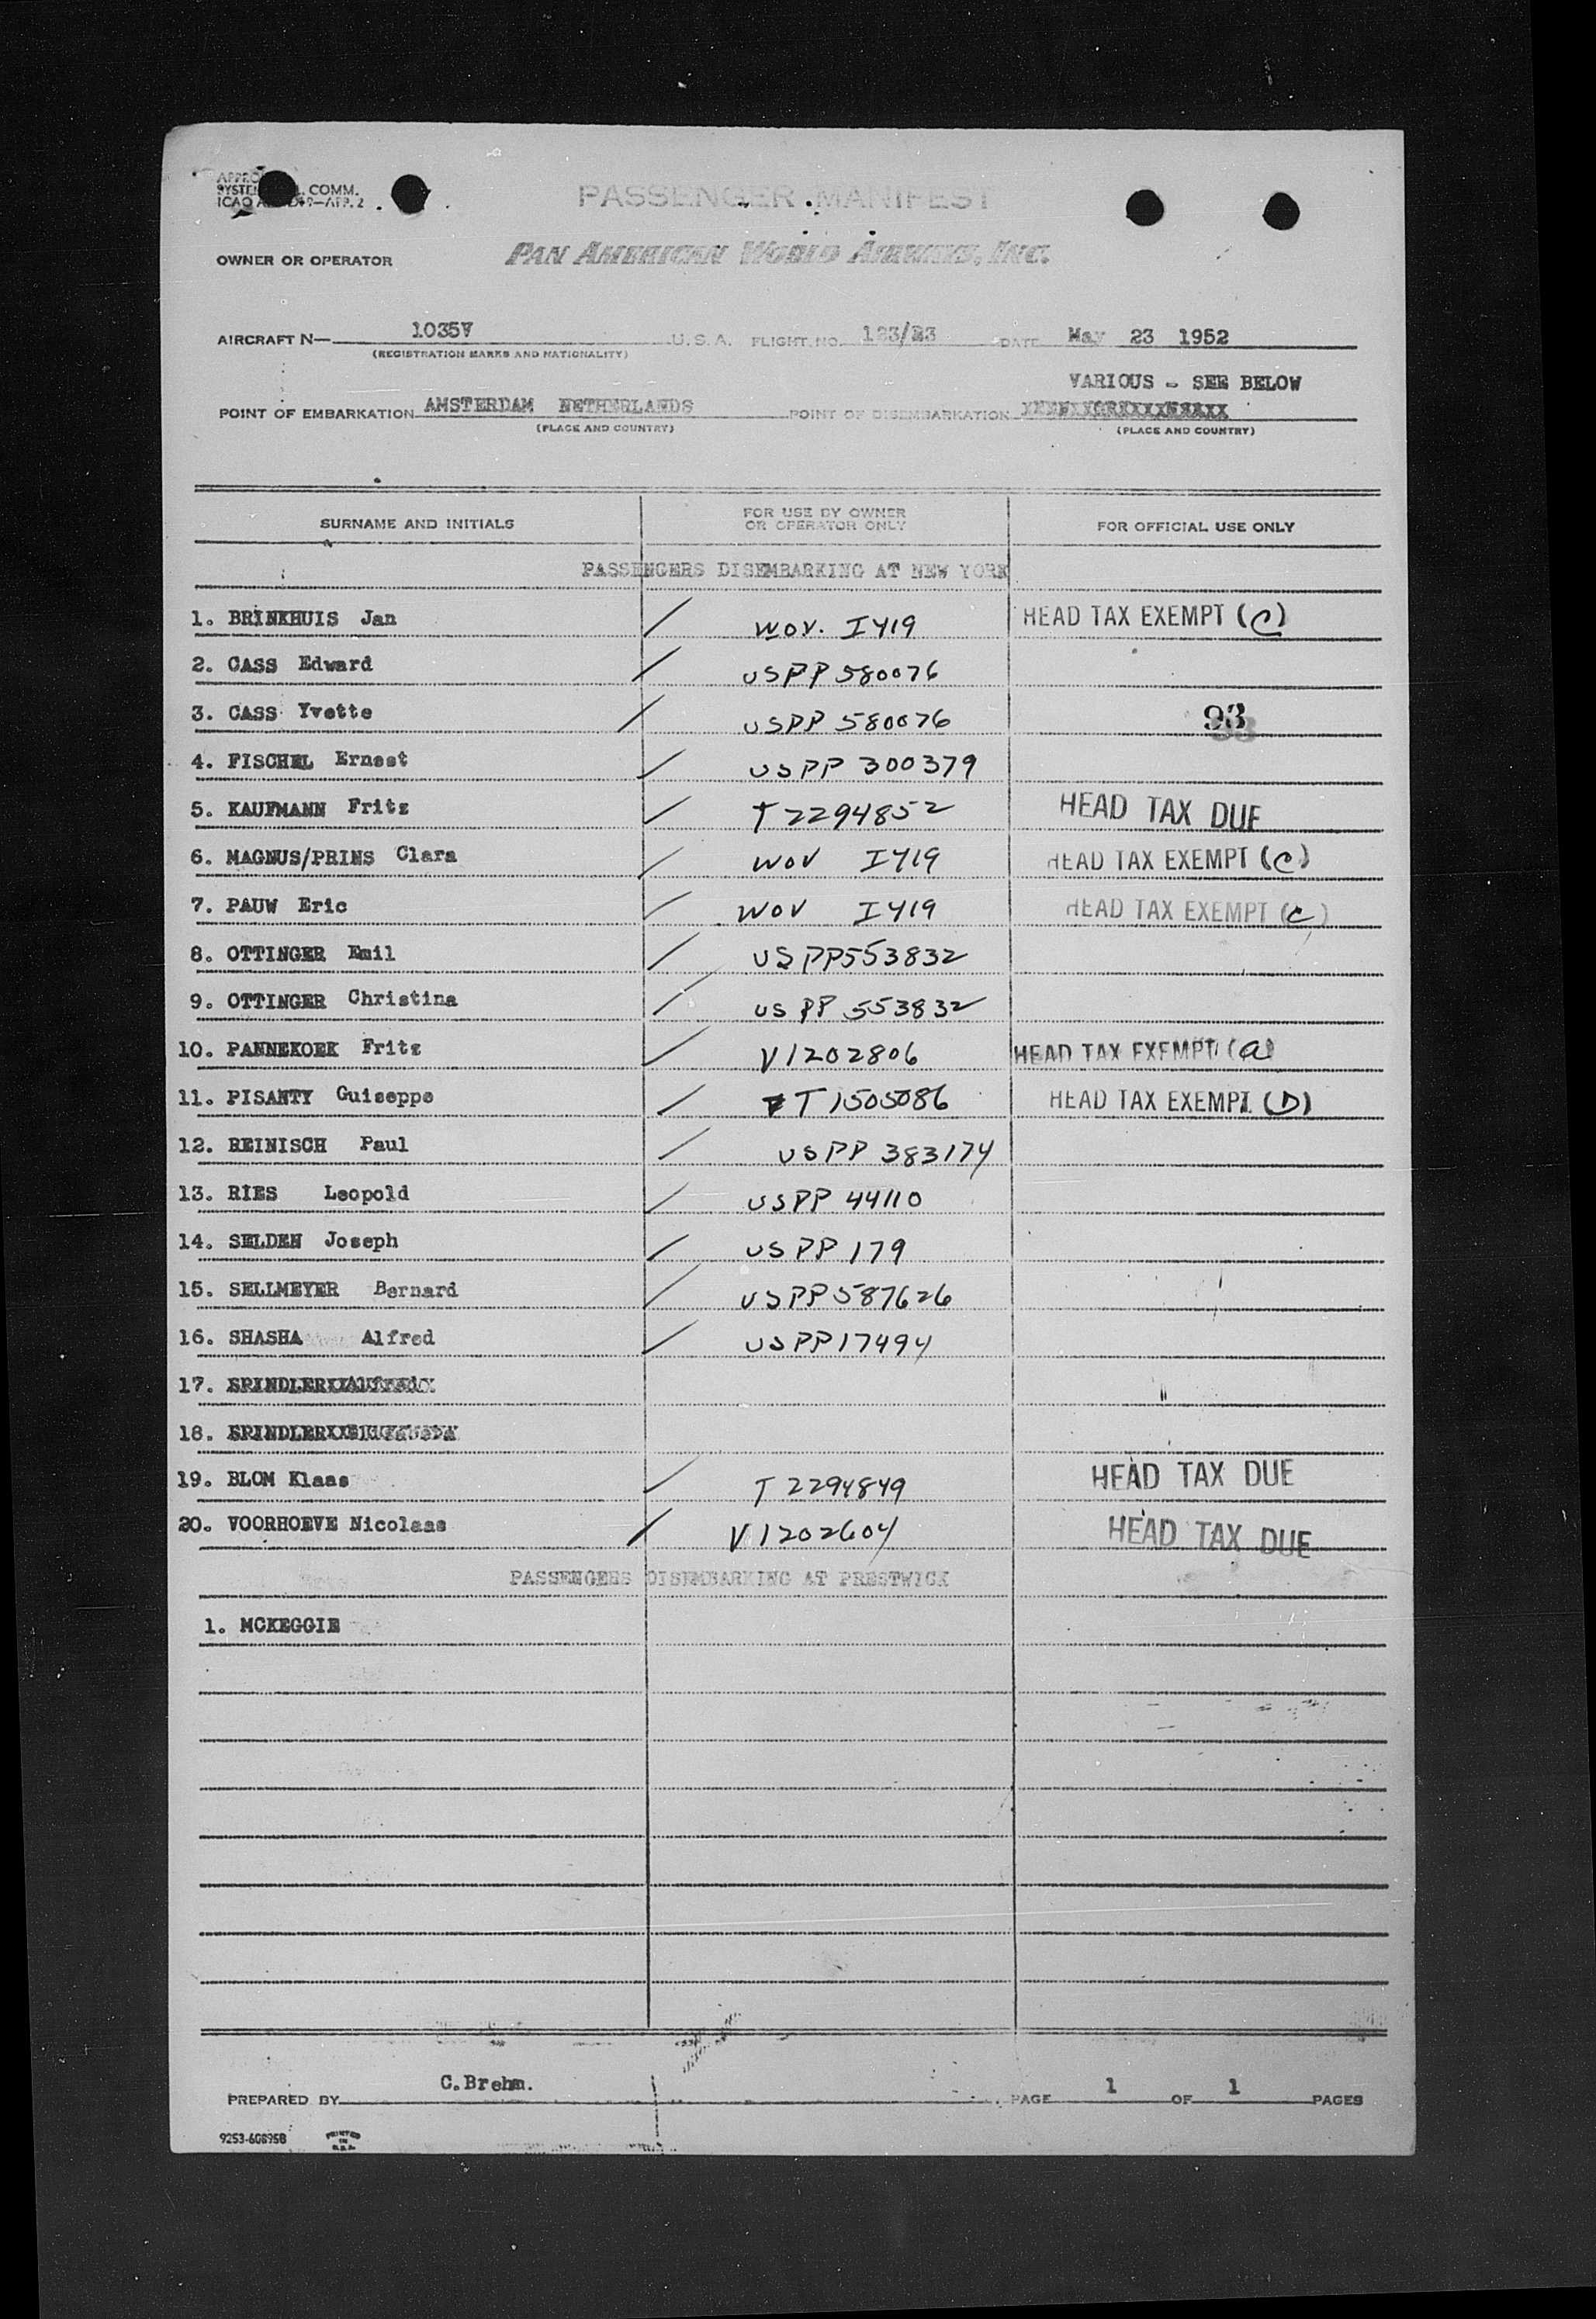 SYSTEM COMM.
PASSENGER MANIFEST
OWNER OR OPERATOR PAN AMERICAN WORLD AIRWAYS, INC.
AIRCRAFT N— 1035V U. S. A. FLIGHT NO. 123/23 DATE May 23 1952
(REGISTRATION MARKS AND NATIONALITY)
VARIOUS - SEE BELOW
POINT OF EMBARKATION AMSTERDAM NETHERLANDS POINT OF DISEMBARKATION
(PLACE AND COUNTRY) (PLACE AND COUNTRY)
SURNAME AND INITIALS FOR USE BY OWNER OR OPERATOR ONLY FOR OFFICIAL USE ONLY
PASSENGERS DISEMBARKING AT NEW YORK
1. BRINKHUIS Jan / WOV. I419 HEAD TAX EXEMPT (C)
2. CASS Edward / USPP 580076
3. CASS Yvette / USPP 580076 93
4. FISCHEL Ernest / USPP 300379
5. KAUFMANN Fritz / T 2294852 HEAD TAX DUE
6. MAGNUS/PRINS Clara / WOV I419 HEAD TAX EXEMPT (C)
7. PAUW Eric / WOV I419 HEAD TAX EXEMPT (C)
8. OTTINGER Emil / USPP553832
9. OTTINGER Christina / USPP 553832
10. PANNEKOEK Fritz / V1202806 HEAD TAX EXEMPT (a)
11. PISANTY Guiseppe / T1505086 HEAD TAX EXEMPT (D)
12. REINISCH Paul / USPP 383174
13. RIES Leopold / USPP 44110
14. SELDEN Joseph / USPP 179
15. SELLMEYER Bernard / USPP587626
16. SHASHA Alfred / USPP17494
17. SPINDLER
18. SPINDLER
19. BLOM Klaas / T 2294849 HEAD TAX DUE
20. VOORHOEVE Nicolaas / V1202604 HEAD TAX DUE
PASSENGERS DISEMBARKING AT PRESTWICK
1. MCKEGGIE
PREPARED BY C.Brehm. PAGE 1 OF 1 PAGES
PRINTED IN U.S.A.